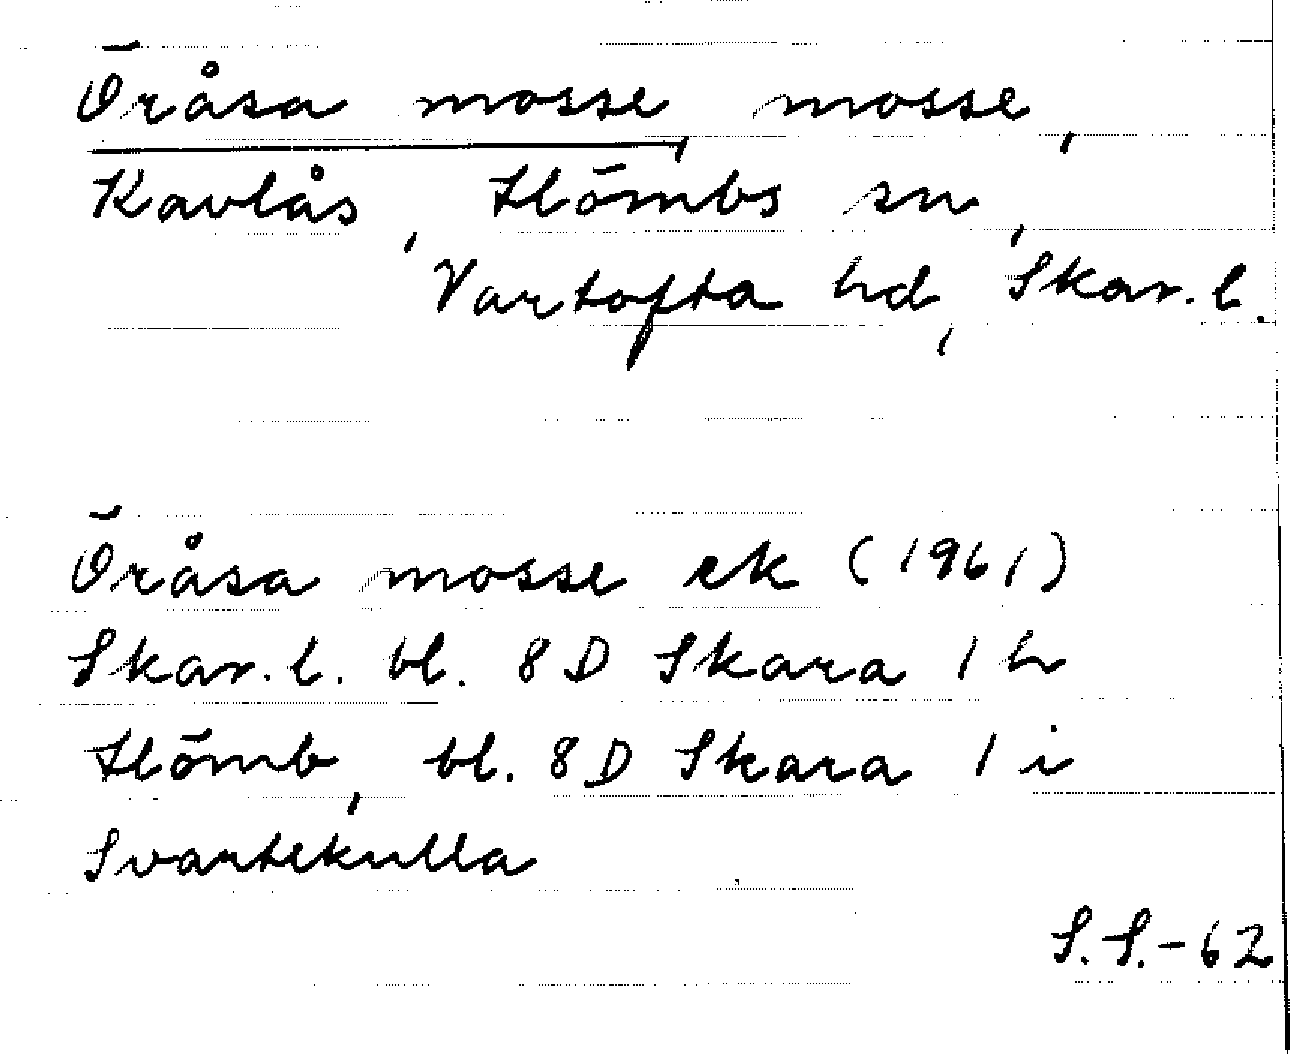 Öråsa mosse, mosse,
Kavlås, Hömbs sn,
Vartofta hd, Skar. l.
Öråsa mosse ek (1961)
Skar. l. bl. 8 D Skara 1 h
Hömb, bl. 8 D Skara 1 i
Svartekulla
S.S.-62